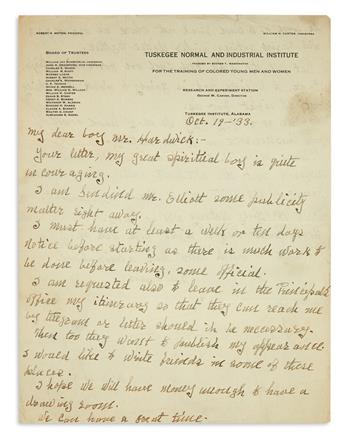 ROBERT R. MOTON, PRINCIPAL
WILLIAM H. CARTER, TREASURER
BOARD OF TRUSTEES
TUSKEGEE NORMAL AND INDUSTRIAL INSTITUTE
FOUNDED BY BOOKER T. WASHINGTON
FOR THE TRAINING OF COLORED YOUNG MEN AND WOMEN
RESEARCH AND EXPERIMENT STATION
GEORGE W. CARVER, DIRECTOR
TUSKEGEE INSTITUTE, ALABAMA
Oct. 19-'33.
my dear boy Mr. Hardwick:-
Your letter, my great spiritual boy is quite
incouraging.
I am sending Mr. Elliott some publicity
matter right away.
I must have at least a week or ten days
notice before starting as there is much work to
be done before leaving, some official.
I am requested also to leave in the Principal's
office my itinerary so that they can reach me
by telegram or letter should it be necessary.
Then too they want to publish my appearance.
I would like to write friends in some of these
places.
I hope we will have money enough to have a
drawing room.
We can have a great time.